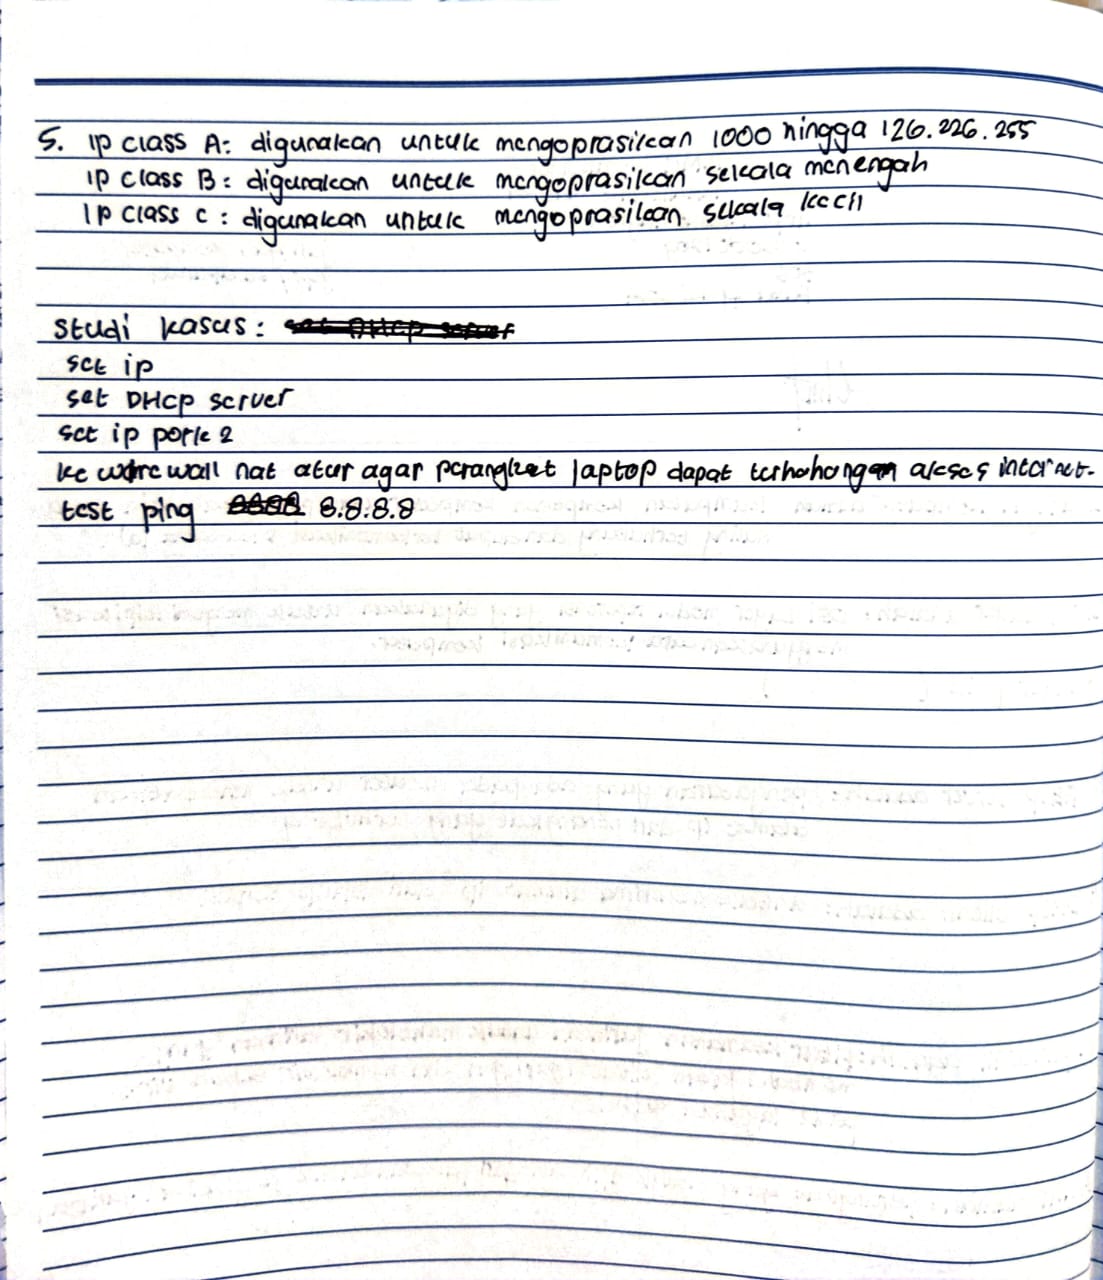 5. IP class A: digunakan untuk mengoprasikan 1000 hingga 126.226.255
IP class B: digunakan untuk mengoprasikan sekala menengah
IP class C: digunakan untuk mengoprasikan sekala kecil
studi kasus: set DHCP server
set ip
set DHCP server
set ip portk 2
ke wall nat atur agar perangket laptop dapat terhohongan akses internet.
test ping 8.8.8.8